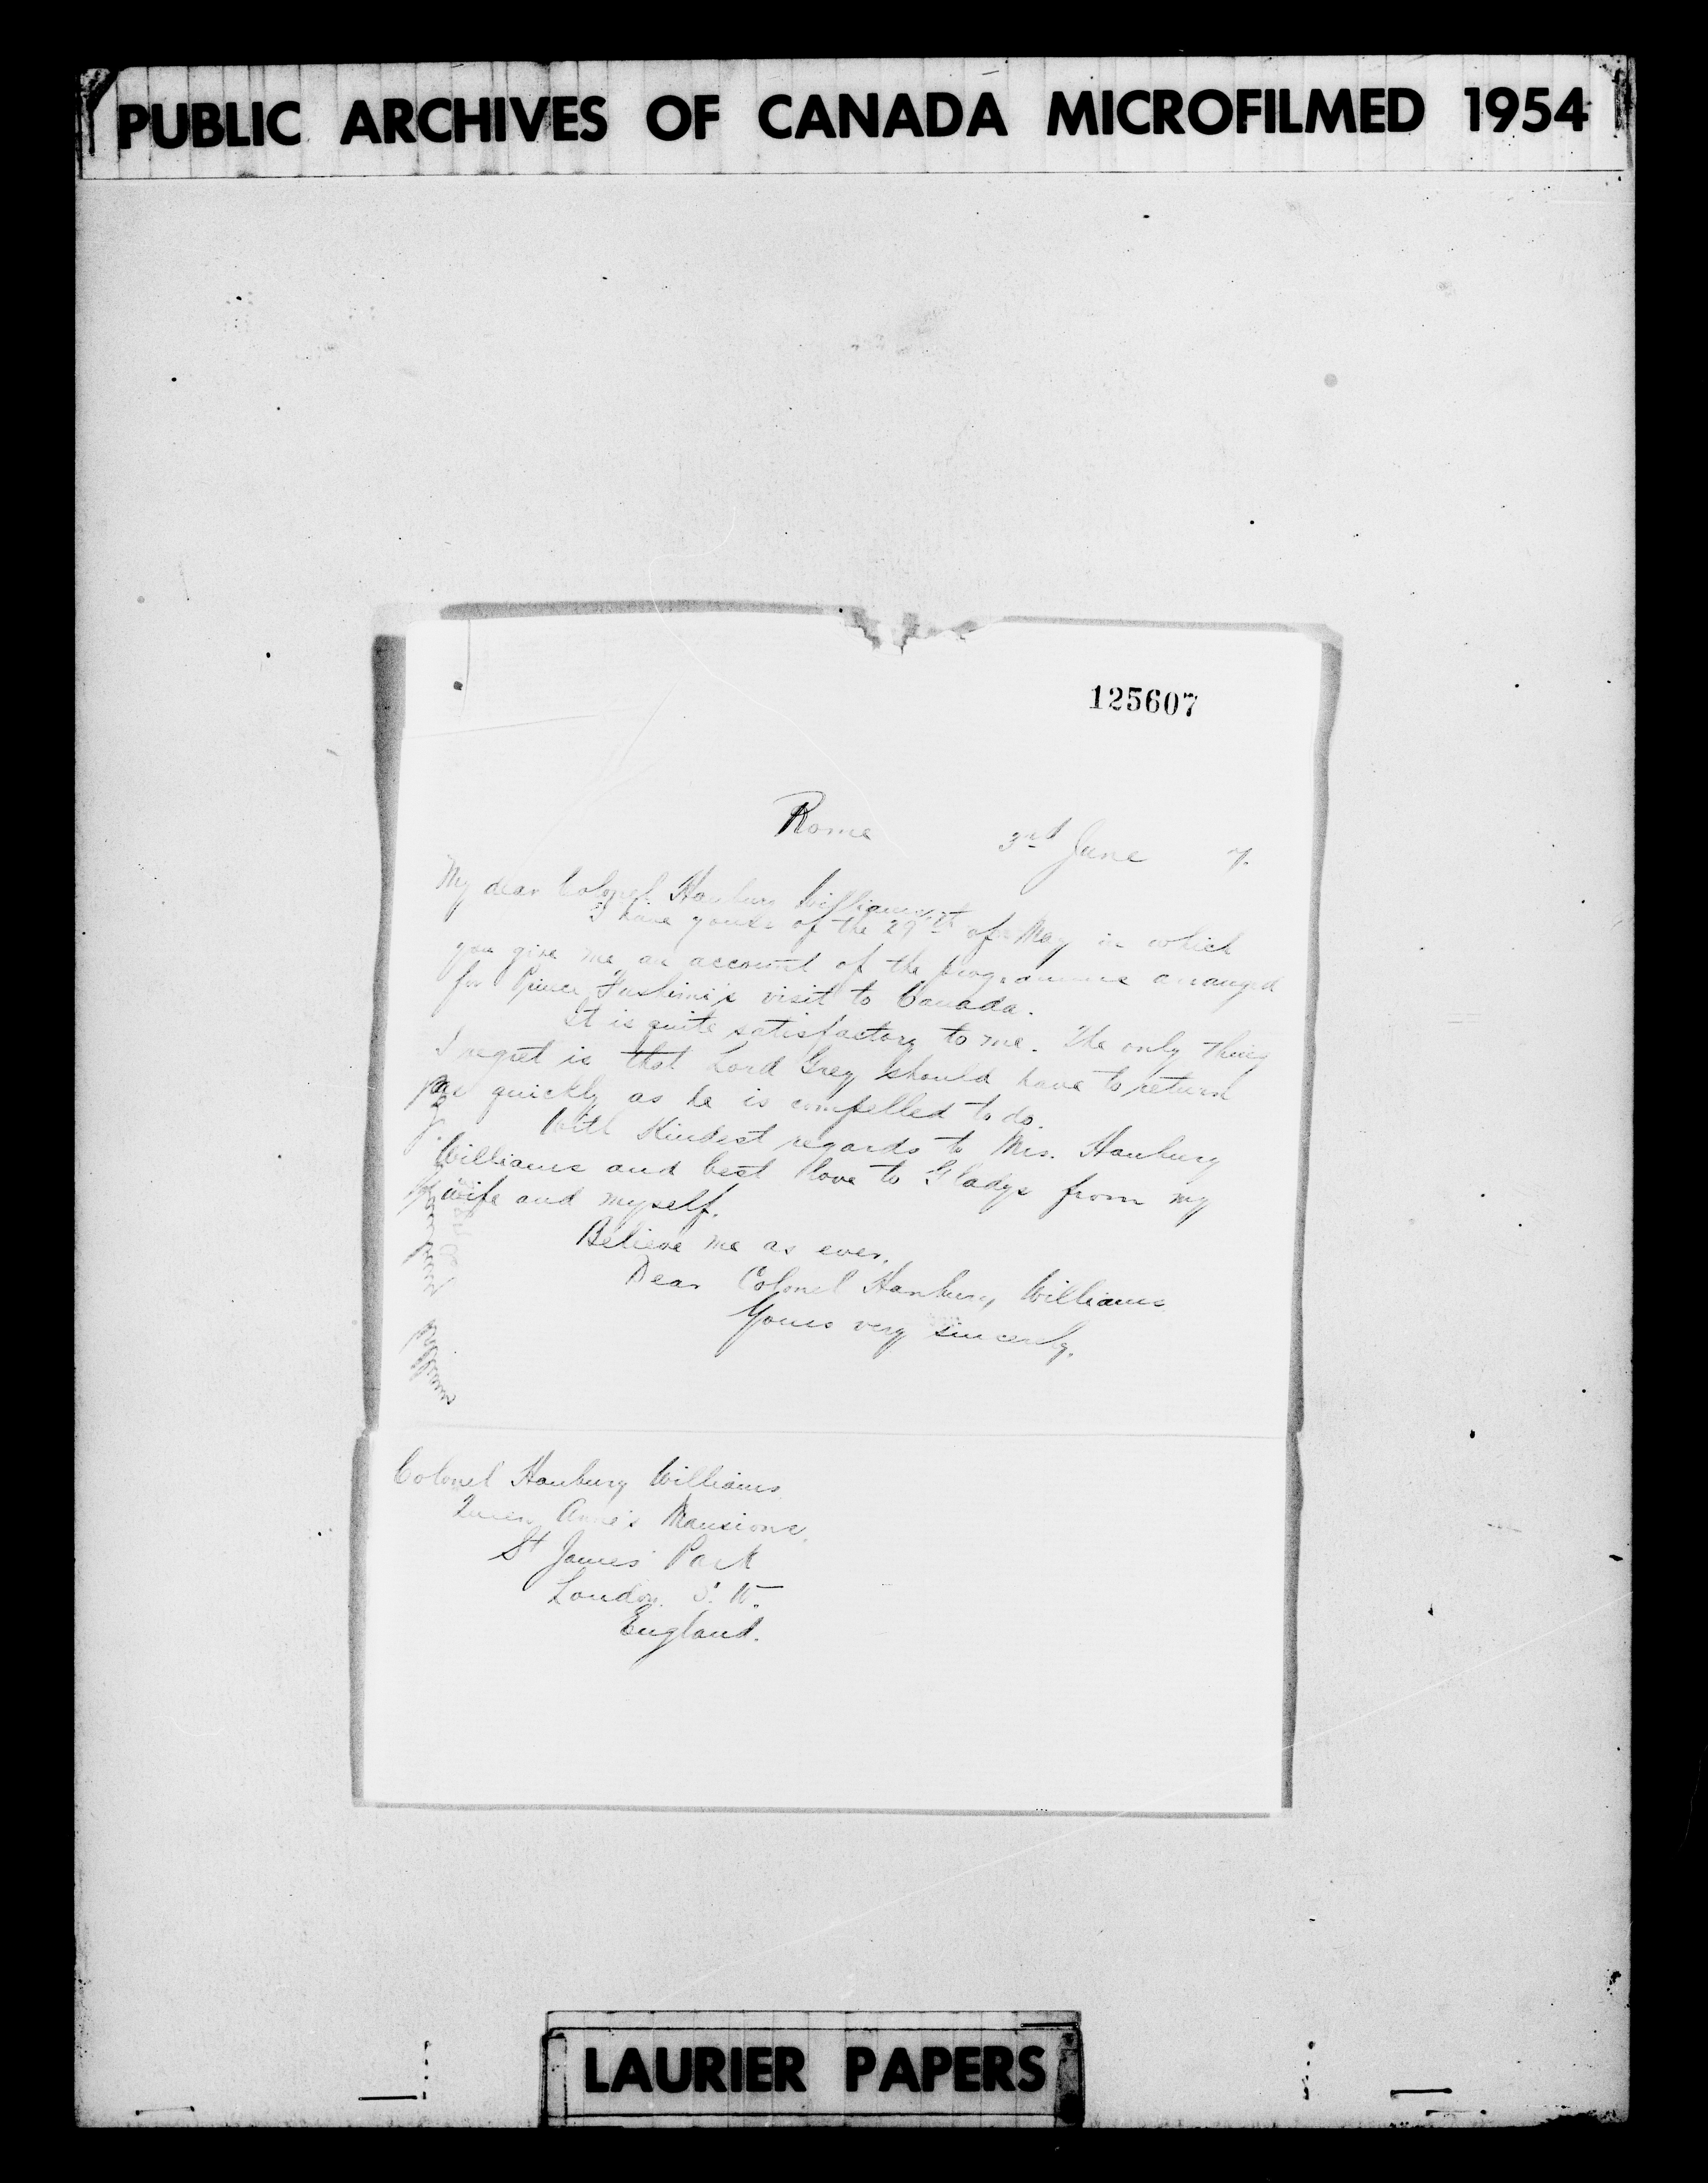 PUBLIC ARCHIVES OF CANADA MICROFILMED 1954
125607
Rome 3rd June 7.
My dear Colonel Hanbury Williams,
I have yours of the 29th of May in which
you give me an account of the programme arranged
for Prince Fushimi's visit to Canada.
It is quite satisfactory to me. The only thing
I regret is that Lord Grey should have to return
as quickly as he is compelled to do.
With kindest regards to Mrs. Hanbury
Williams and best love to Gladys from my
wife and myself.
Believe me as ever,
Dear Colonel Hanbury Williams
Yours very sincerely.
Colonel Hanbury Williams
Queen Anne's Mansions,
St James' Park
London. S. W.
England.
LAURIER PAPERS